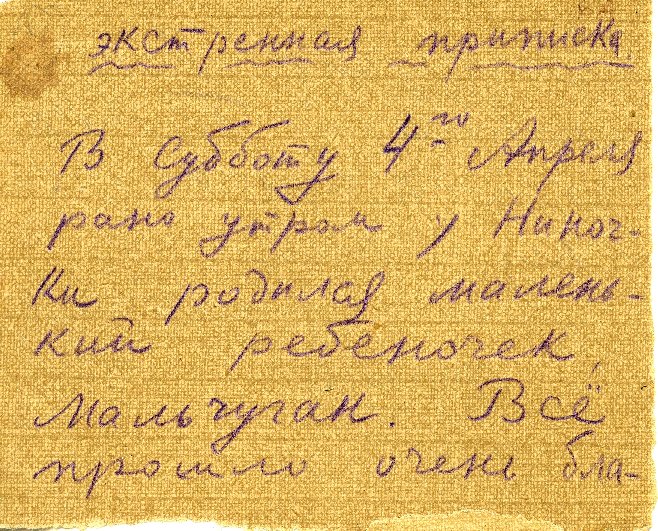 экстренная приписка
В субботу 4го Апреля
рано утром у Ниноч-
ки родился малень-
кий ребеночек,
мальчуган. Всё
прошло очень бла-